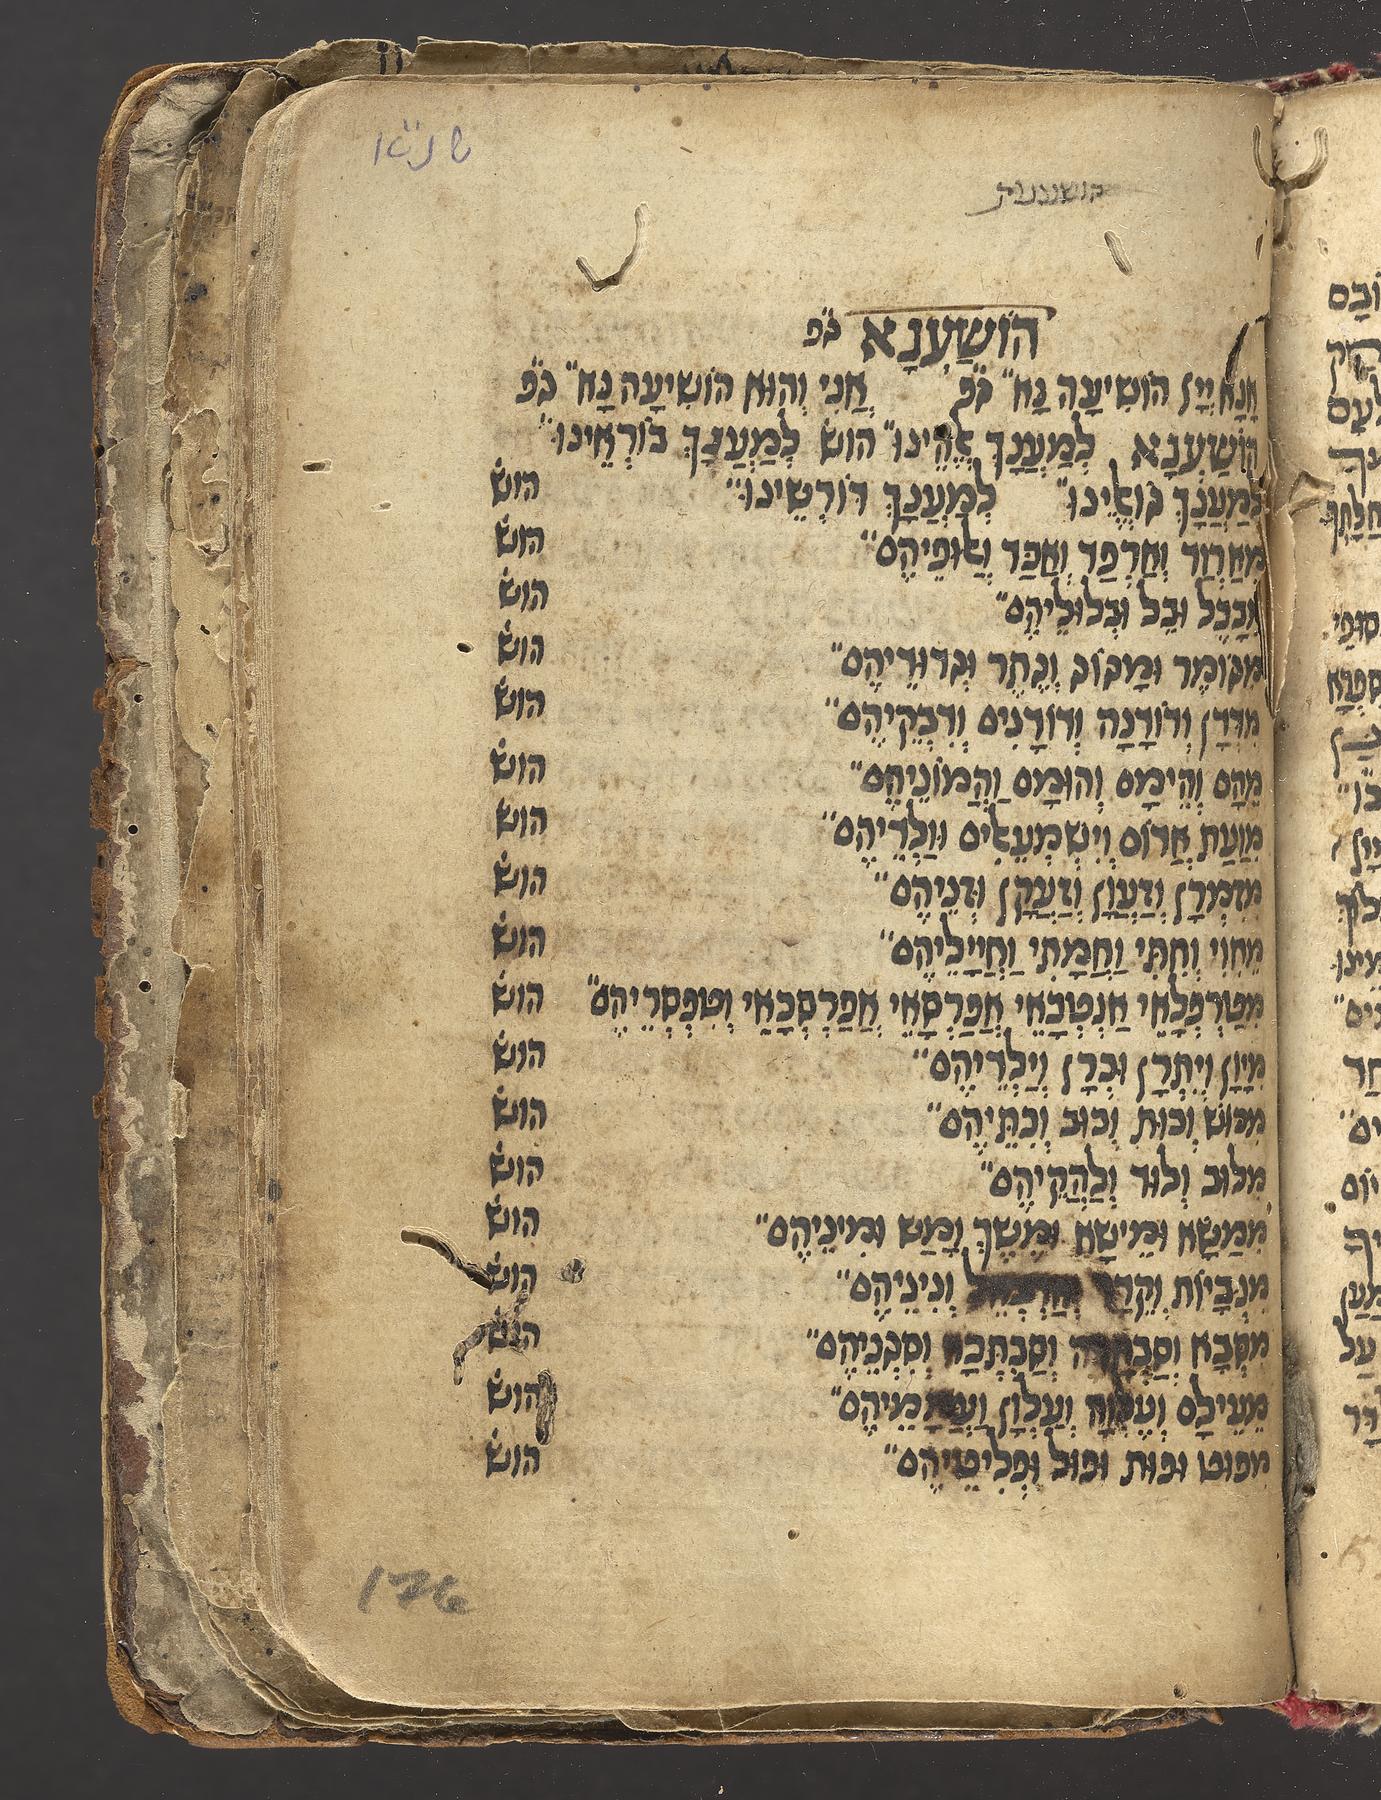 הושענות
הוֹשַׁעְנָא ב̇פ̇
אָנָא יְיָן הוֹשִׁיעָה נַּא" ב̇פ̇ אֲנִי וְהוּא הוֹשִׁיעָה נָּא" ב̇פ̇
הוֹשַׁעְנָא לְמַעֲנָךְ אֱלֹהֵינוּ" הוש לְמַעֲנָךְ בּוֹרְאֵינוּ"
לְמַעֲנָךְ גּוֹאֲלֵינוּ" לְמַעֲנָךְ דּוֹרְשֵׁינוּ" הוש
מֵאַרְוַד וְאַרְפַּד וְאַכַּד וְאַלּוּפֵיהֶם" הוש
וּבָבֶל וּבֵל וּבְלוּלֵיהֶם" הוש
מִגּוֹמֶר וּמָגוֹג וְגֶתֶר וּגְדוּדֵיהֶם" הוש
מִדְּדָן וְדוֹרָנָה וְדוֹדָנִים וְדִבְקֵיהֶם" הוש
מֵהָם וְהֵימָם וְהוּמָם וַהֲמוֹנֵיהֶם" הוש
אֲדוֹם וְיִשְׁמְעֵאלִים וּוַלְדֵיהֶם" הוש
מִזִּמְרָן וְזַעֲוָן וְזַעֲקָן וְזָנֵיהֶם" הוש
מֵחִוִּי וְחִתִּי וַחֲמָתִי וַחֲיָילֵיהֶם" הוש
מִטַּרְפְּלָאֵי אֲפַרְסָאֵי אֲפַרְסְכָאֵי וְטִפְסְרֵיהֶם" הוש
מִיָּוָן וְיִתְרָן וּבְרָן וְיַלְדֵיהֶם" הוש
מִכּוּשׁ וְכוּת וְכוּב וְכִתֵּיהֶם" הוש
מִלּוּב וְלוּד וְלַהֲקֵיהֶם" הוש
מִמַּשָּׂא וּמֵישָׁא וּמֶשֶׁךְ וָמַשׁ וּמִינֵיהֶם" הוש
מִנְּבָיוֹת וְקֵדָר וְנִינֵיהֶם" הוש
מִסְּבָא וְסַבְתְּכָא וְסִגְנֵיהֶם" הוש
מֵעֵילָם וְעַלְוָה וְעַלְוָן הוש
מִפּוּט וּפוּת וּפוּל וּפְלִיטֵיהֶם" הוש
176